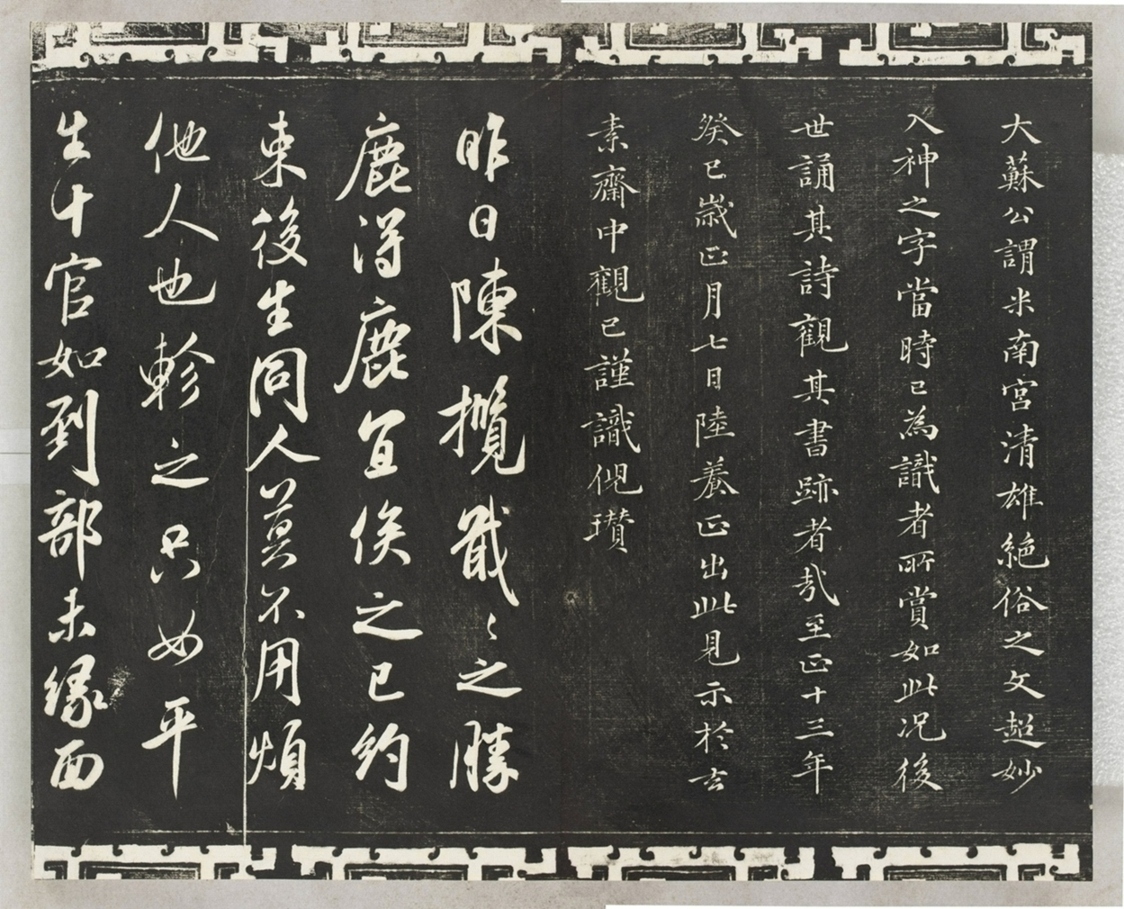 大蘇公謂米南宮清雄絕俗之文超妙
入神之字當時已為識者所賞如此况後
世誦其詩觀其書跡者哉至正十三年
癸巳歲正月七日陸養正出此見示於玄
素齋中觀已謹識倪瓚
昨日陳攬戢戢之勝
鹿得鹿宜俟之已約
束後生同人莫不用煩
他人也軫之只如平
生十官如到部未緣面